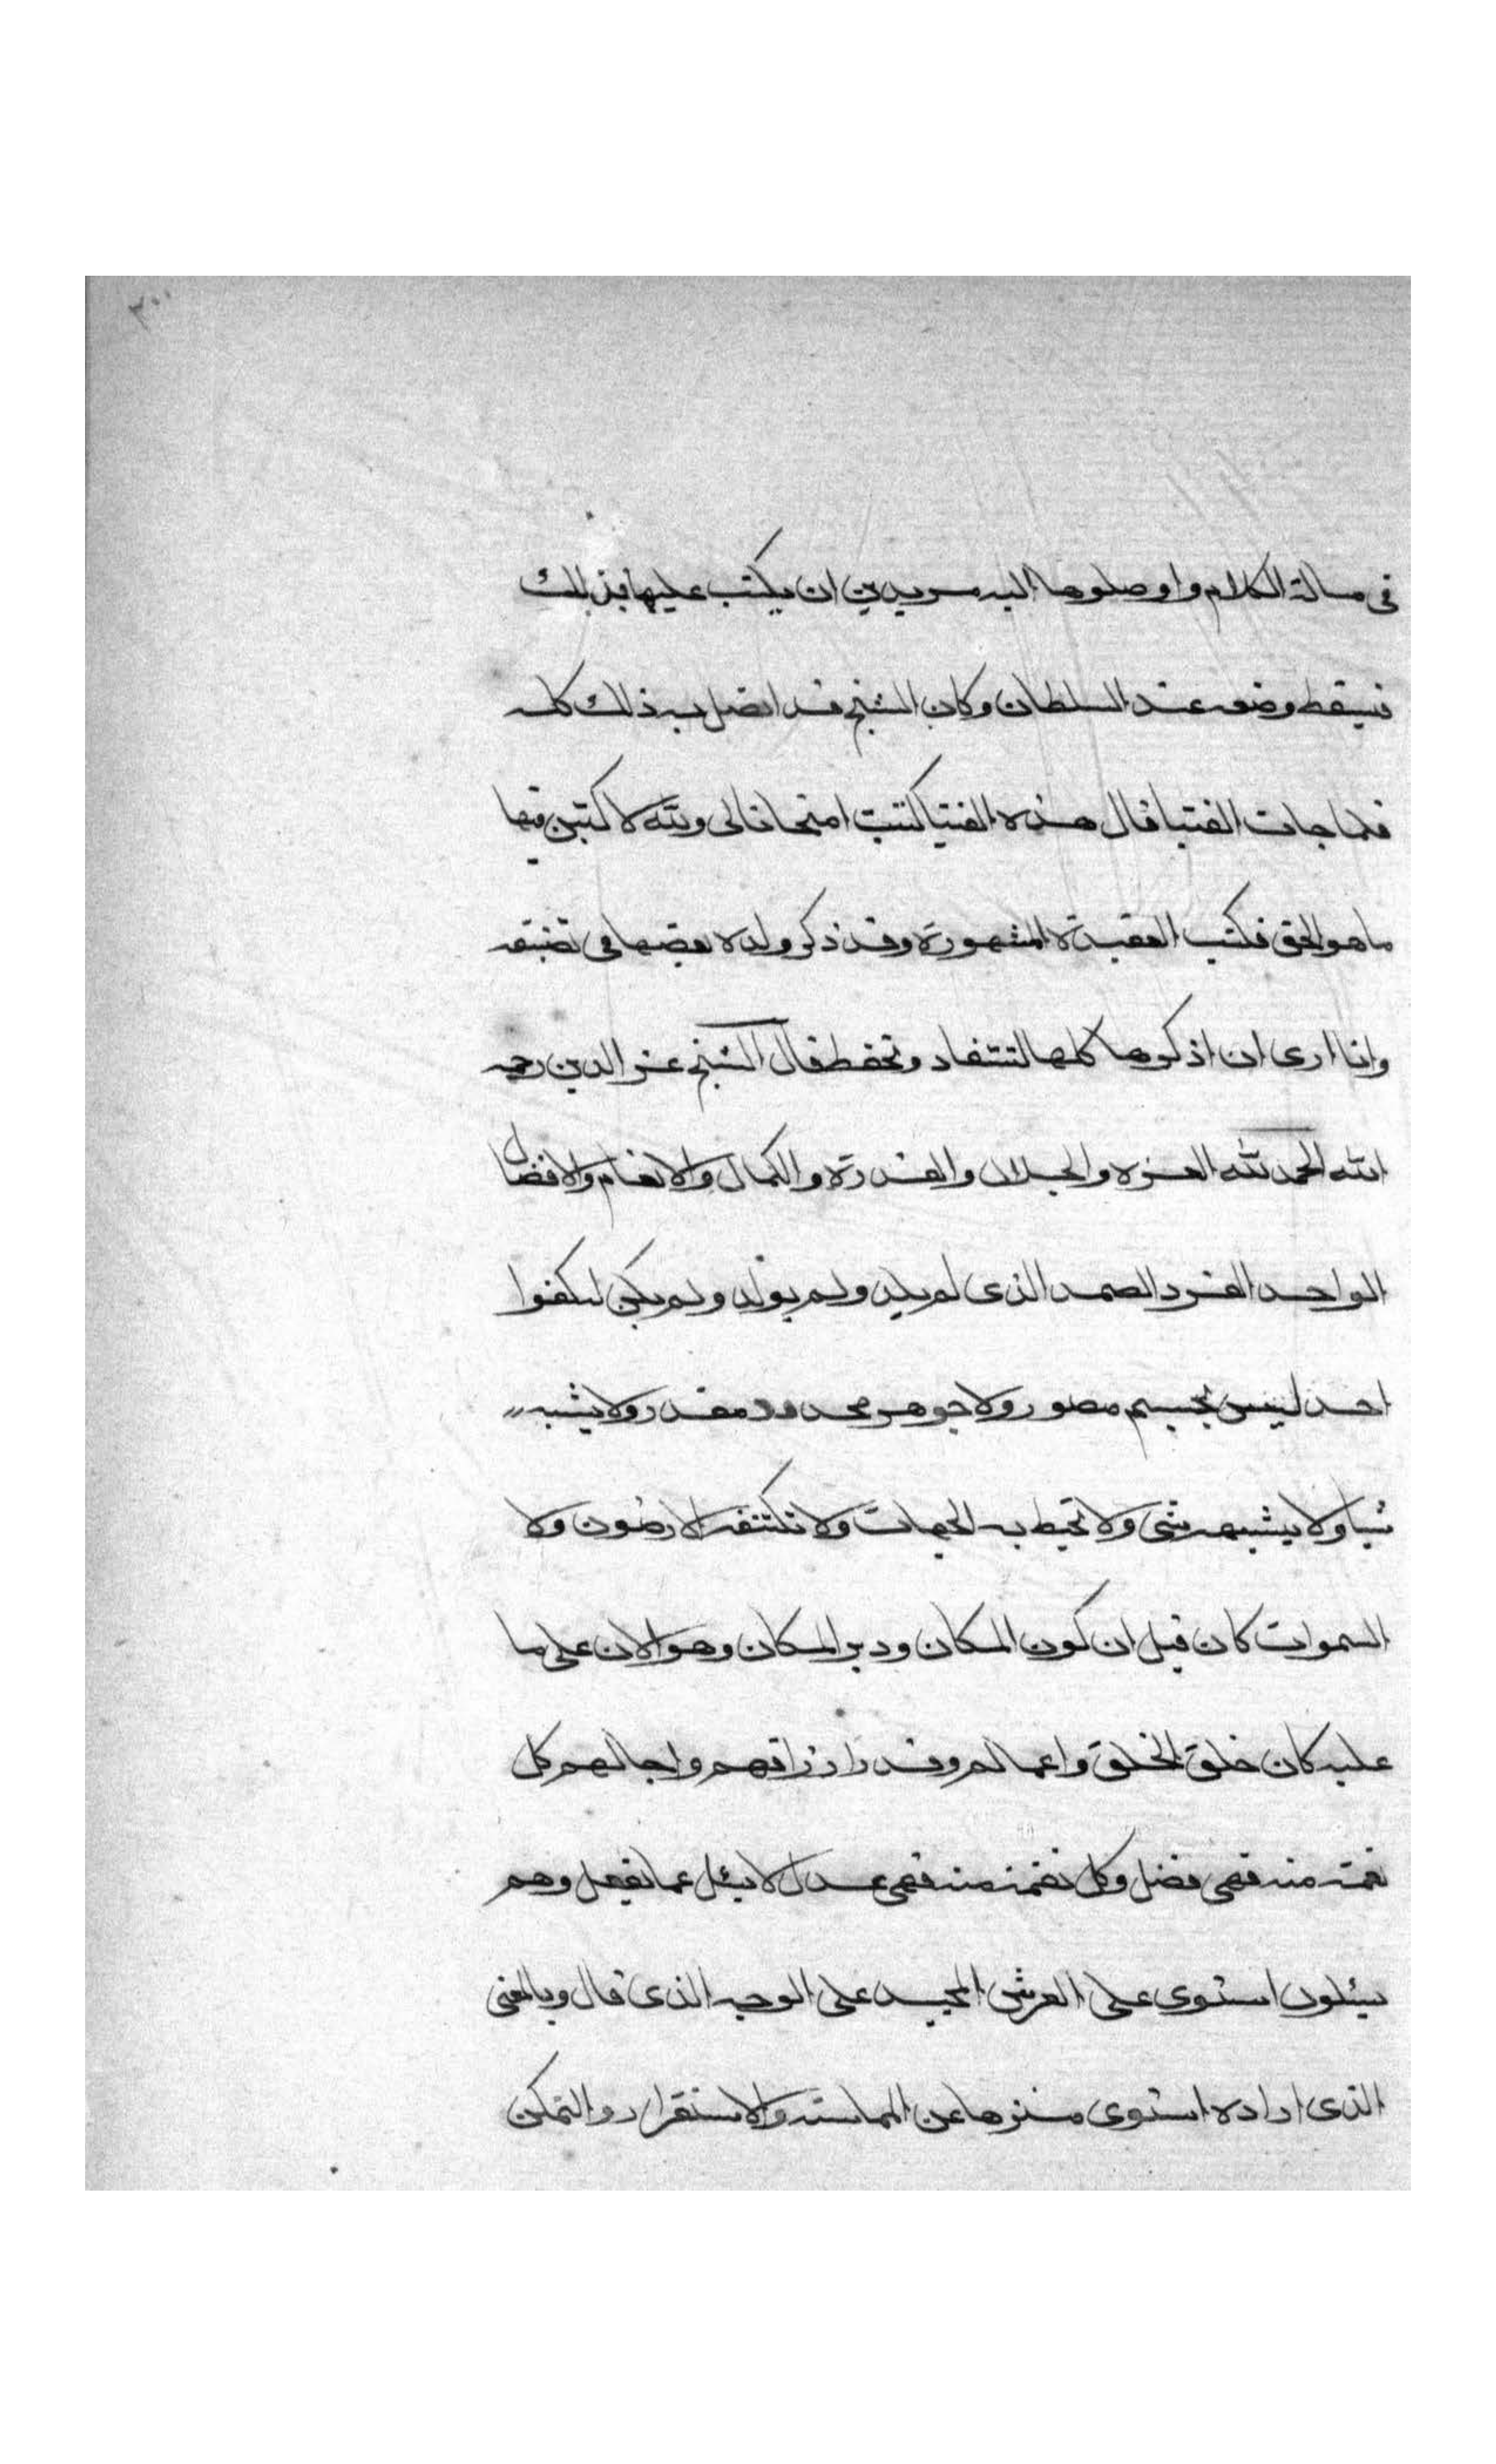 ٣٠٠
فى مسالة الكلام واوصلوها اليه مريدين ان يكتب عليها بذلك
فيسقط وضعه عند السلطان وكان الشيخ قد اتصل به ذلك كله
فلما جات الفتيا قال هذه الفتيا كتبت امتحانا لى والله لا كتبن فيها
ما هو الحق فكتب العقيدة المشهورة وقد ذكر ولده بعضها فى تصنيفه
وانا ارى ان اذكرها كلها لتستفاد وتحفظ قال الشيخ عز الدين رحمه
الله الحمد لله العزه والجلال والقدرة والكمال والانعام والافضال
الواحد الفرد الصمد الذى لم يلد ولم يولد ولم يكن له كفوا
احد ليس بجسم مصور ولا جوهر محدود مقدر ولا يشبه
شيا ولا يشبهه شى ولا تحيط به الجهات ولا تكتنفه الارضون ولا
السموات كان قبل ان كون المكان ودبر المكان وهو الان على ما
عليه كان خلق الخلق واعمالهم وقدر ارزاقهم واجالهم كل
نعمة منه فهى فضل وكل نقمة منه فهى عدل لا يسئل عما يفعل وهم
يسئلون استوى على العرش المجيد على الوجه الذى قال وبالمعنى
الذى اراده استوى منزها عن المماسة والاستقرار والتمكن